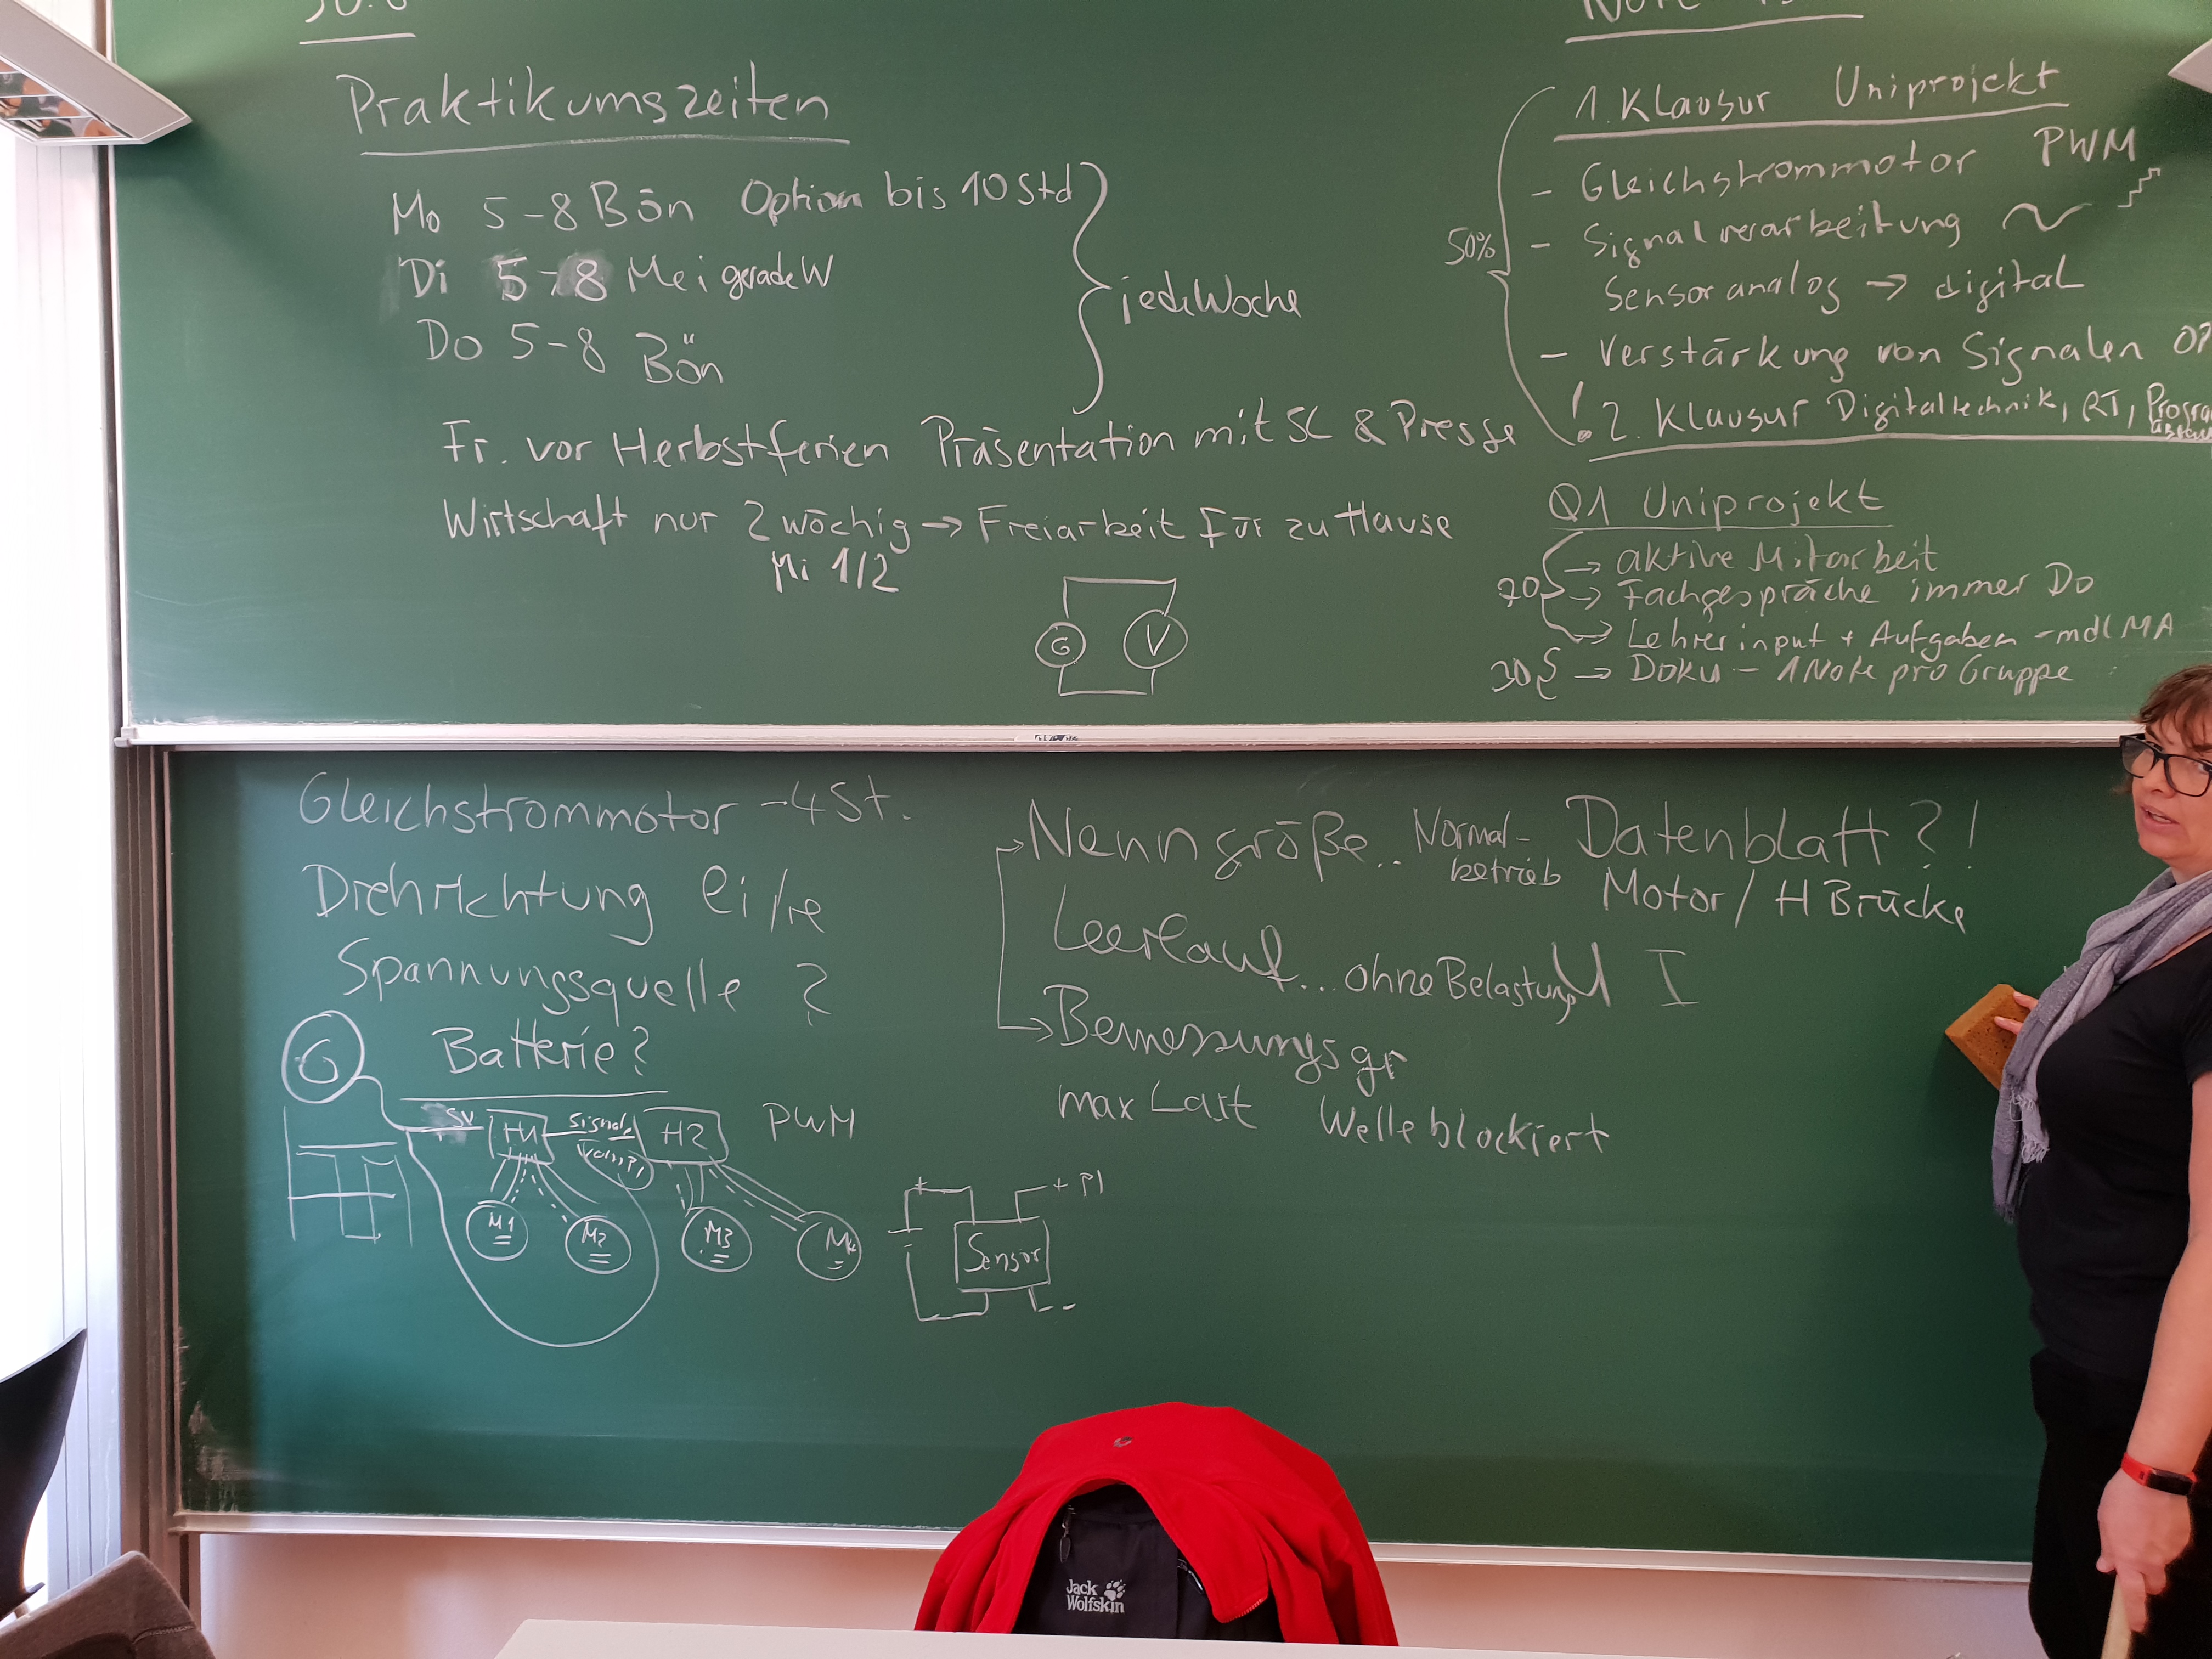 Praktikumszeiten
Mo 5-8 Bön Option bis 10 Std
Di 5-8 Mei gerade W
Do 5-8 Bön
jede Woche
Fr. vor Herbstferien Präsentation mit SC & Presse
Wirtschaft nur 2 wöchig → Freiarbeit für zu Hause
Mi 1/2
G V
Note
1. Klausur Uniprojekt
50%
- Gleichstrommotor PWM
- Signalverarbeitung
Sensor analog → digital
- Verstärkung von Signalen
! 2. Klausur Digitaltechnik, RT,
Q1 Uniprojekt
70
→ aktive Mitarbeit
→ Fachgespräche immer Do
→ Lehrerinput + Aufgaben - mdl MA
30
→ DOKU - 1 Note pro Gruppe
Gleichstrommotor - 4 St.
Drehrichtung li/re
Spannungsquelle ?
Batterie?
G
5V H1 Signale H2 PWM
M1 M2 M3 M4
+ + PI
Sensor
- -
Nenngröße.. Normal-
betrieb
Datenblatt?!
Motor / H Brücke
Leerlauf... ohne Belastung U I
Bemessungsgr
max Last Welle blockiert
Jack
Wolfskin